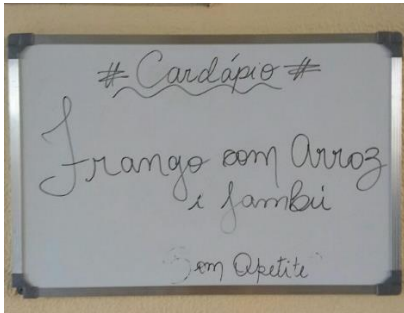 # Cardápio #
Frango com Arroz
e Jambú
Bom Apetite